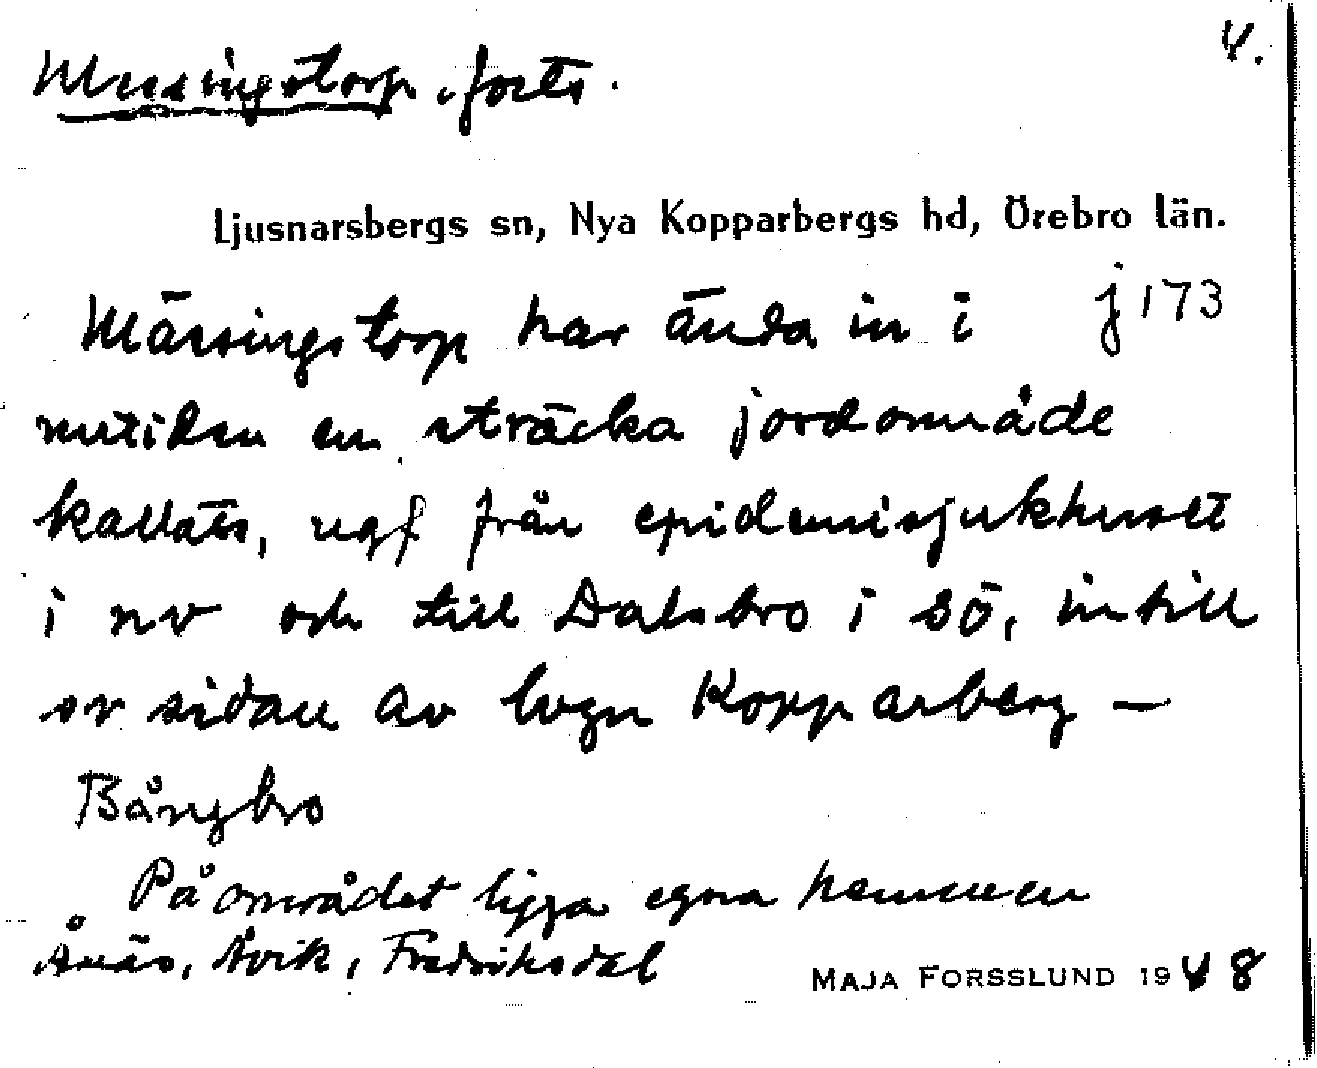 4.
Messingstorp, forts.
Ljusnarsbergs sn, Nya Kopparbergs hd, Örebro län.
Mässingstorp har ända in i j 173
nutiden en sträcka jordområde
kallats, ngf från epidemisjukhuset
i nv och till Dalsbro i sö, intill
sv sidan av lvgn Kopparberg –
Bångbro
På området ligga egna hemmen
Ånäs, Åvik, Fredriksdal
MAJA FORSSLUND 1948